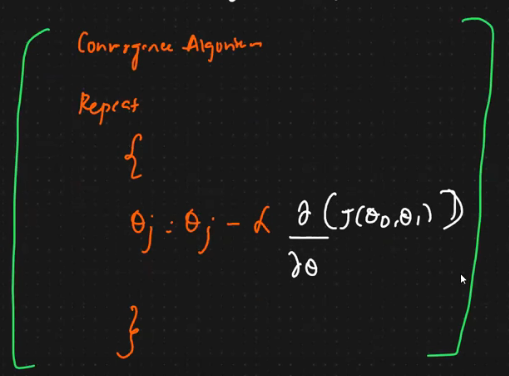 Convergence Algorithm
Repeat
{
θj : θj - α ∂/∂θ (J(θ0,θ1))
}